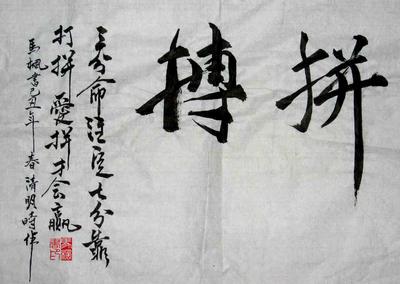 拼搏
三分命注定七分靠
打拼爱拼才会赢
马枫书己丑年春清明时作